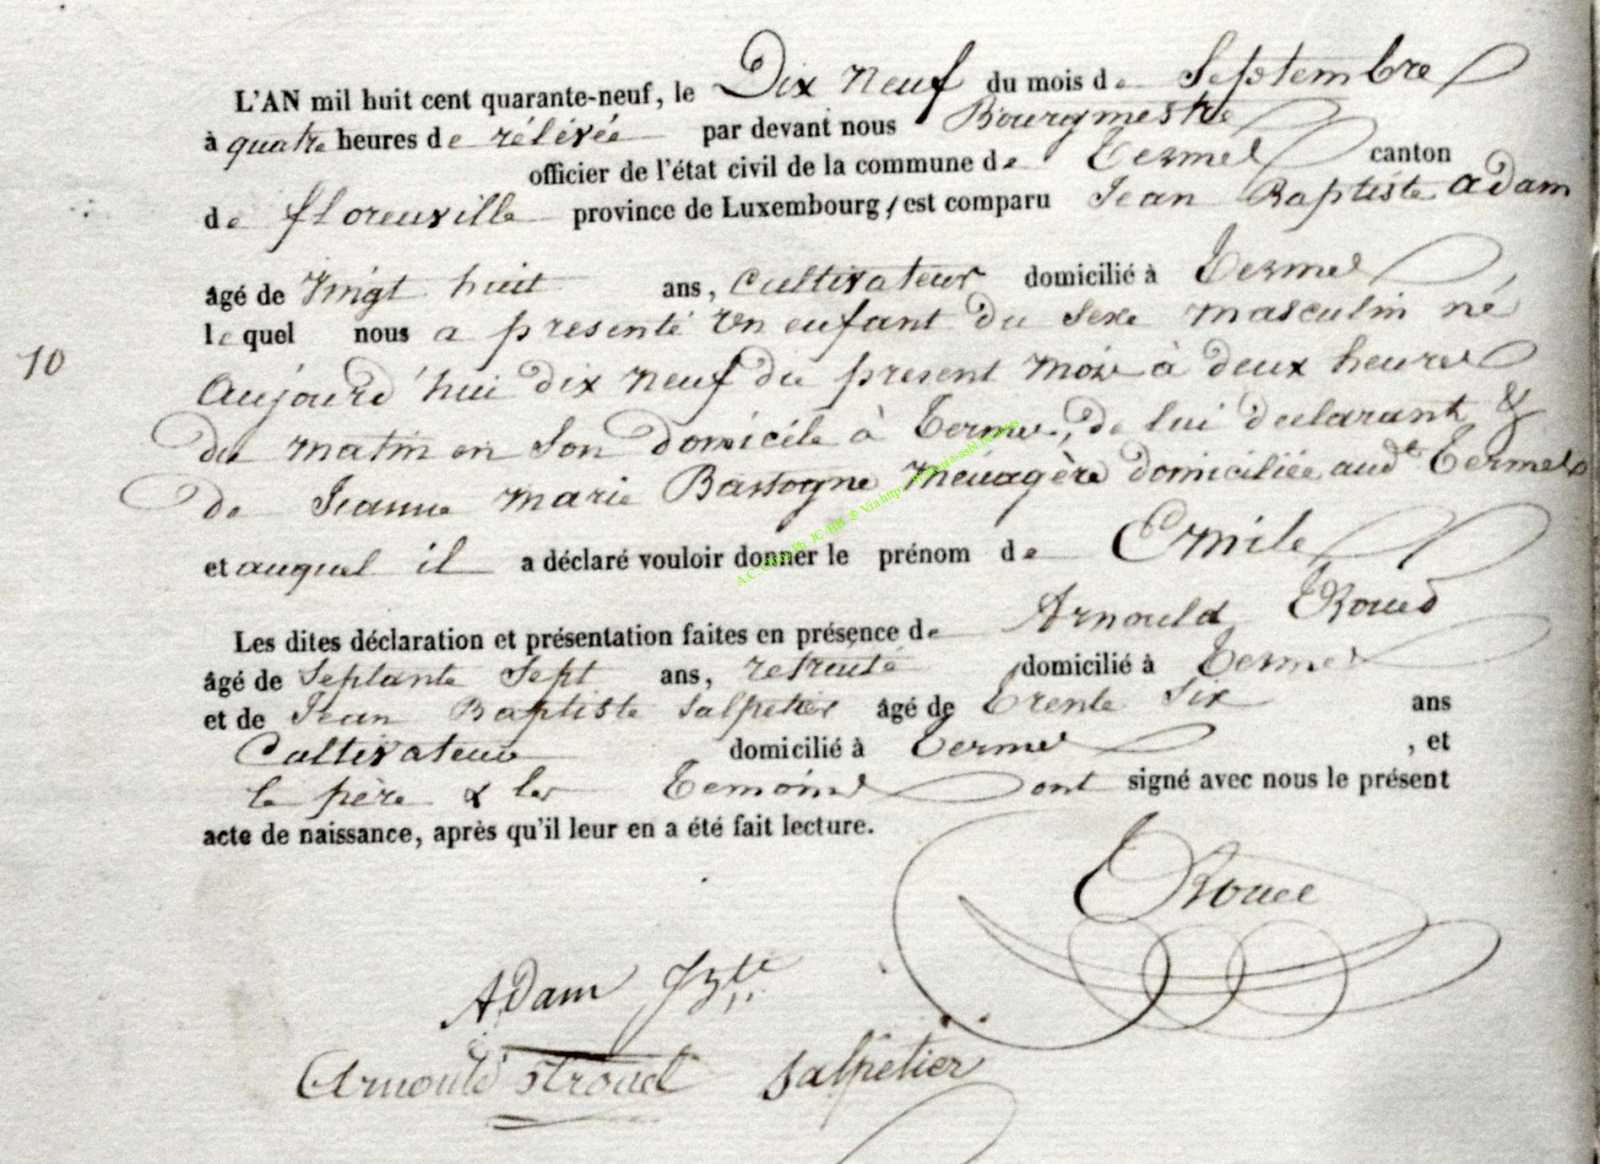 L'AN mil huit cent quarante-neuf, le Dix neuf du mois de Septembre
à quatre heures de rélévée par devant nous Bourgmestre
officier de l'état civil de la commune de Termes canton
de florenville province de Luxembourg, est comparu Jean Baptiste adam
âgé de Vingt huit ans, Cultivateur domicilié à Termes
lequel nous a présenté Un enfant du Sexe masculin né
10
Aujourd'hui dix neuf du present mois à deux heures
du matin en Son domicile à Termes, de lui déclarant &
de Jeanne marie Bastogne Ménagère domiciliée audt Termes
et auquel il a déclaré vouloir donner le prénom de Emile
Les dites déclaration et présentation faites en présence de Arnould
âgé de Septante Sept ans, retraité domicilié à Termes
et de Jean Baptiste Salpetier âgé de trente Six ans
Cultivateur domicilié à Termes , et
le père & les Temoins ont signé avec nous le présent
acte de naissance, après qu'il leur en a été fait lecture.
Adam Jbte
Arnould Salpetier